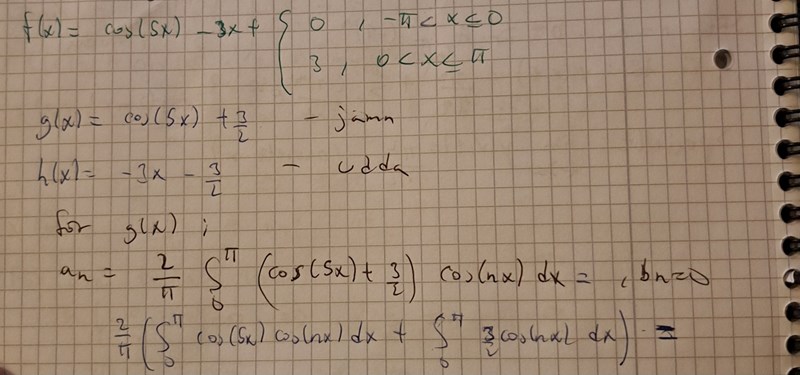 f(x) = cos(5x) - 3x + { 0 , -π < x ≤ 0
3 , 0 < x ≤ π
g(x) = cos(5x) + 3/2 - jämn
h(x) = -3x - 3/2 - udda
for g(x) ;
an = 2/π ∫₀^π (cos(5x) + 3/2) cos(nx) dx = , bn = 0
2/π (∫₀^π cos(5x) cos(nx) dx + ∫₀^π 3/2 cos(nx) dx) =